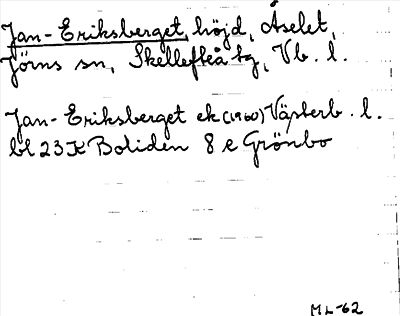 Jan-Eriksberget, höjd, Åselet,
Jörns sn, Skellefteå tg, Vb. l.
Jan-Eriksberget ek (1960) Västerb. l.
bl 23 K Boliden 8 e Grönbo
ML-62